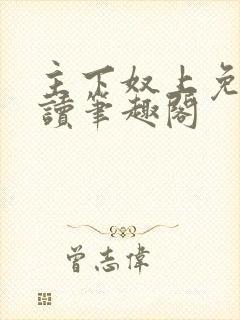 主下奴上免
讀筆趣閣
曾志偉